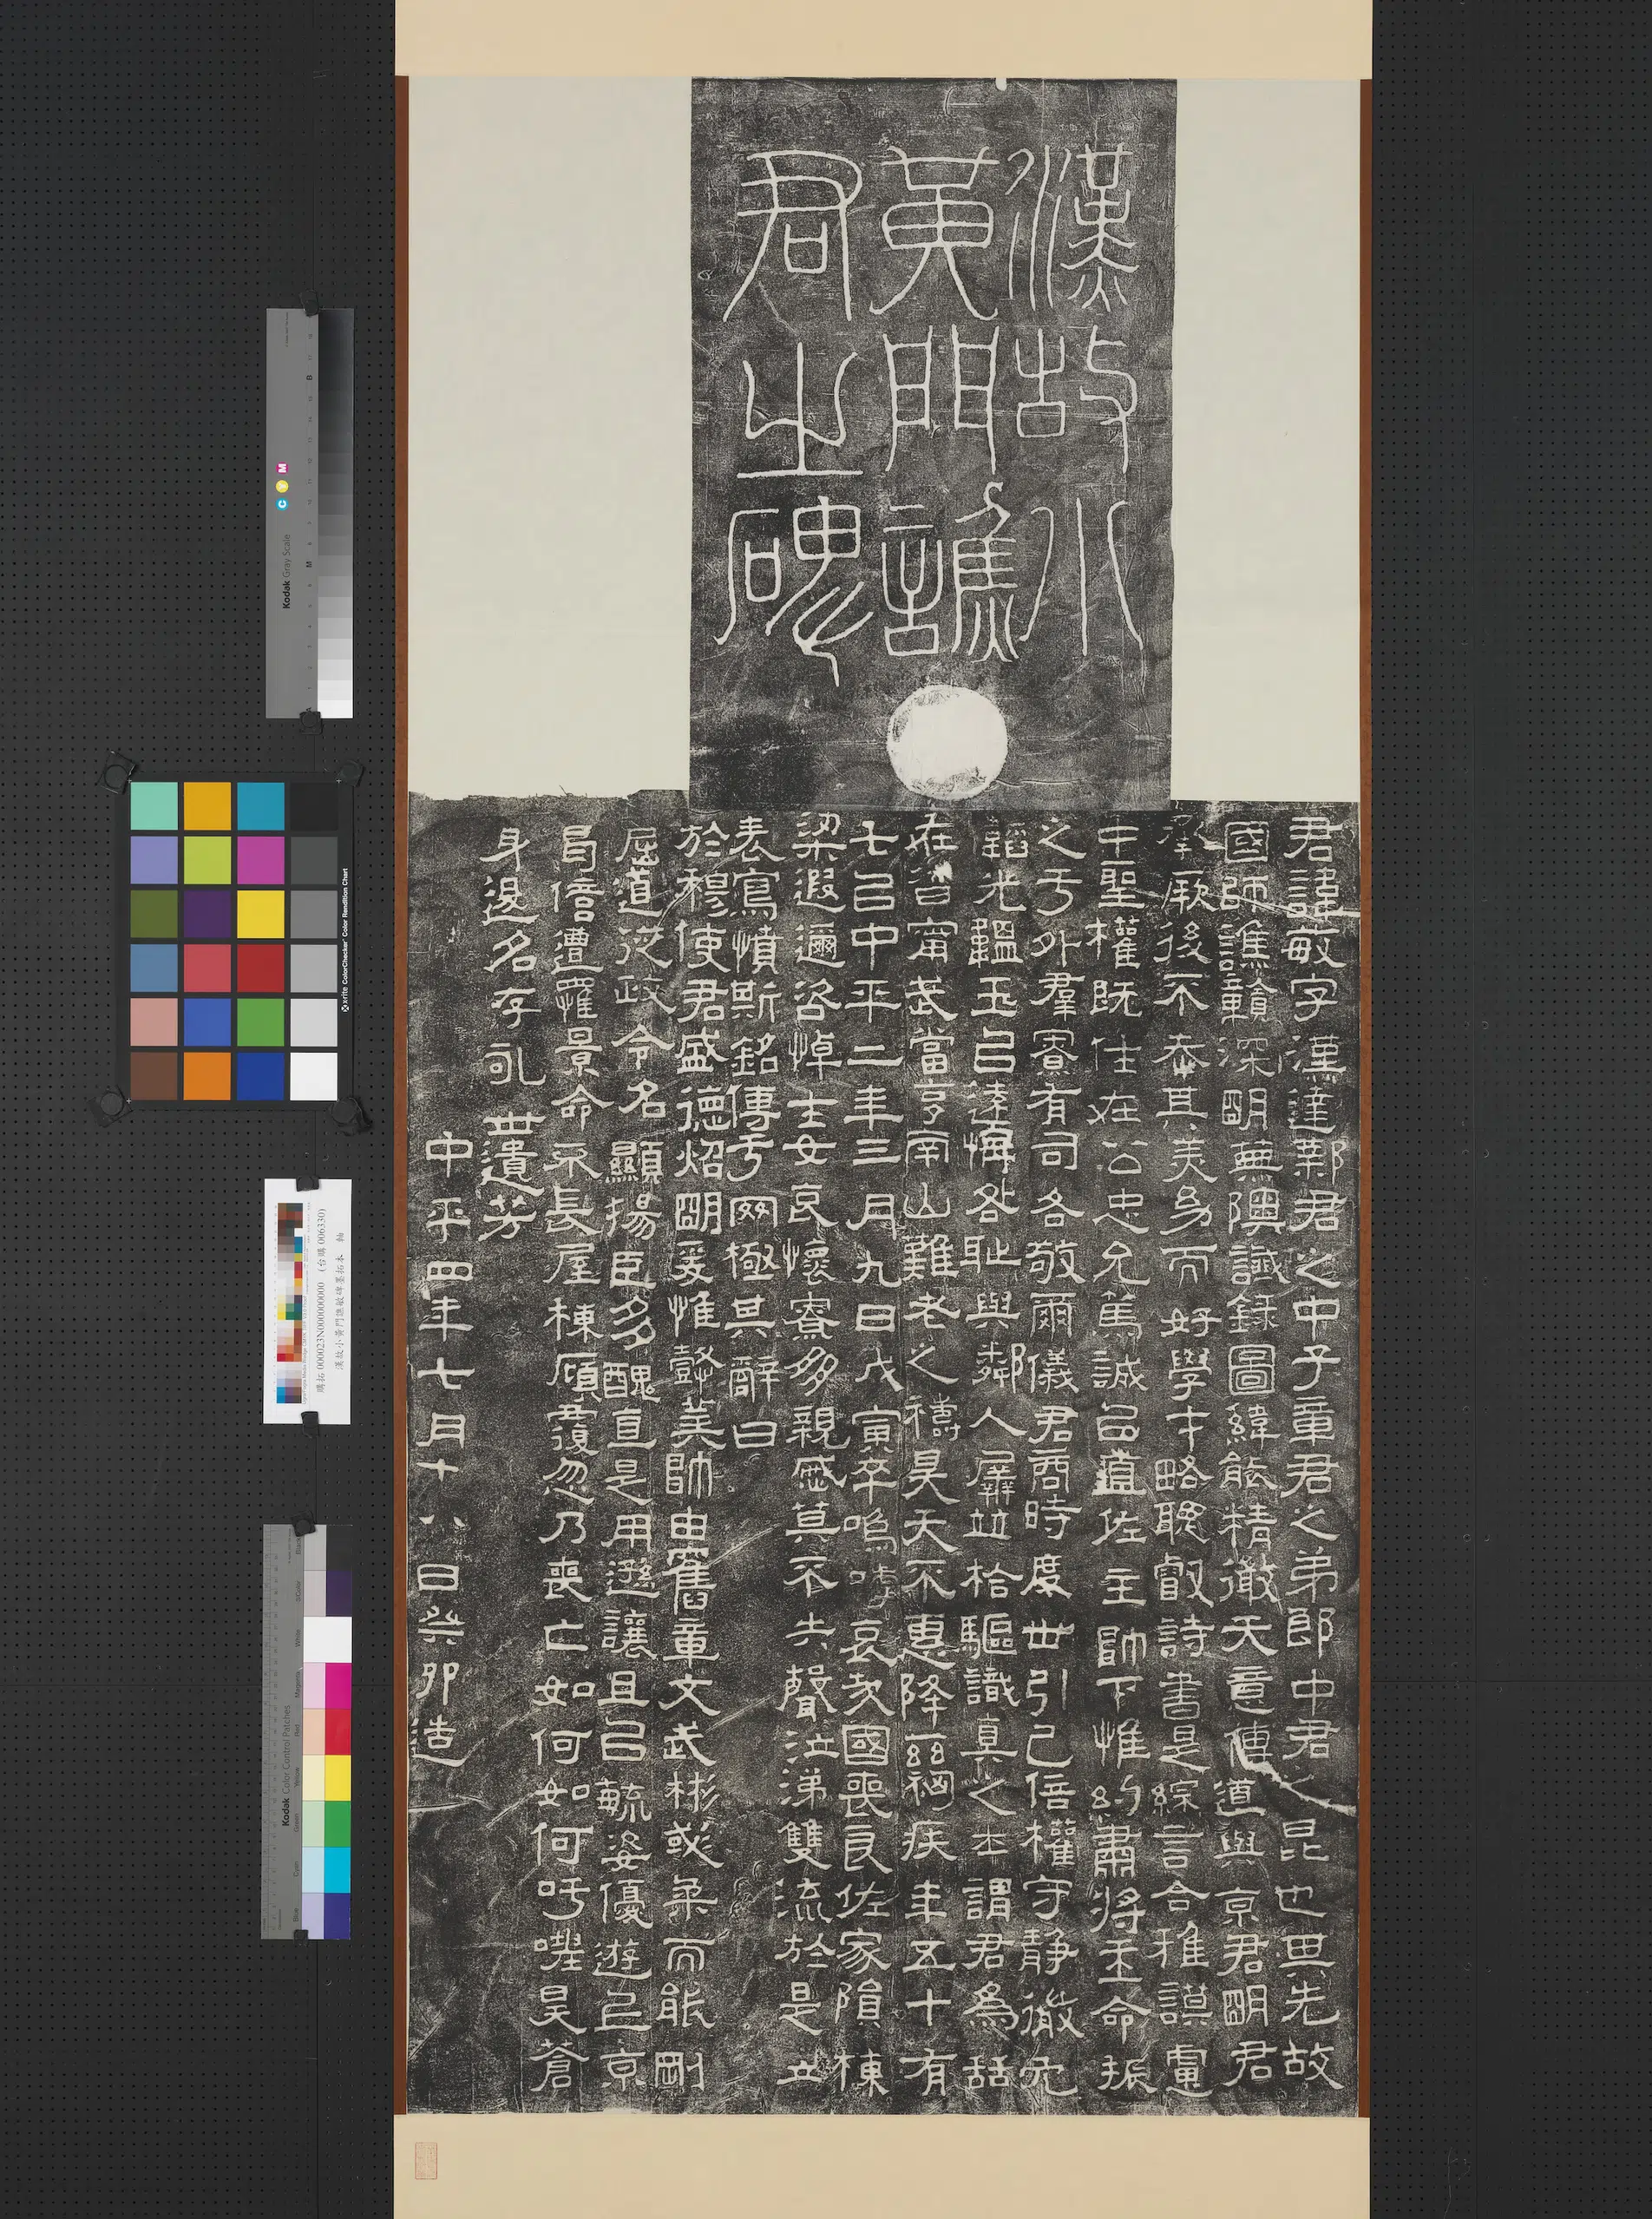 漢故小
黃門譙
君之碑
君諱敏字漢達鄴君之中子章君之弟郎中君之昆也其先故
國師譙贛深明典隩讖錄圖緯能精徹天意傳道與京君明君
承厥後不忝其美幼而好學才略聰叡詩書是綜言合雅謨慮
中聖權既仕在公忠允篤誠以直佐主帥下惟約肅將王命振
之于外群寮有司各敬爾儀君商時度世引己倍權守靜微冗
韜光韞玉以遠悔咎恥與鄰人屏並拾驅識真之士謂君為話
在昔甯武當亨南山難老之禱昊天不惠降茲禍疾年五十有
七以中平二年三月九日戊寅卒嗚呼哀哉國喪良佐家隕棟
梁遐邇咨悼士女哀懷寮多親慼莫不失聲泣涕雙流於是立
表寫憤斯銘傳于罔極其辭曰
於穆使君盛德炤明爰惟懿美帥由舊章文武彬彧柔而能剛
屈道從政令名顯揚臣多醜直是用遜讓且以毓姿優遊京
曷倍遭罹景命不長屋棟傾覆忽乃喪亡如何如何吁嗟昊蒼
身名存永世遺芳
中平四年七月十八日癸卯造
Kodak Gray Scale
x-rite ColorChecker Color Rendition Chart
購拓 000023N000000000 (台購006330)
漢故小黃門譙敏碑墨拓本 軸
Kodak Color Control Patches